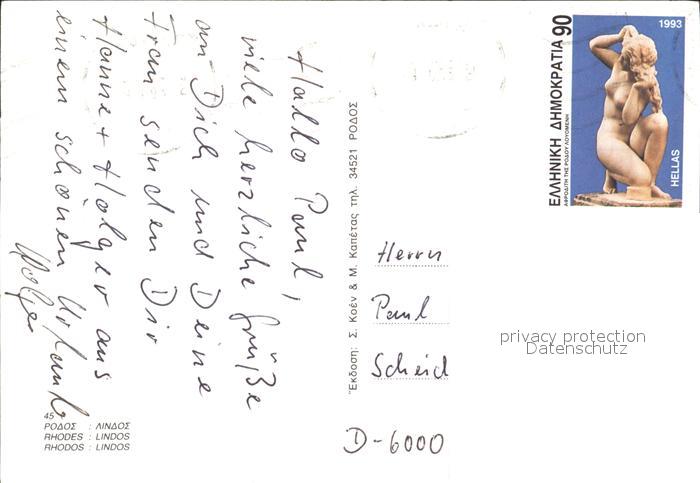 Hallo Paul,
viele herzliche Grüße
an Dich und Deine
Frau senden Dir
Hanne + Holger aus
einem schönen Urlaub
Holger
45
ΡΟΔΟΣ : ΛΙΝΔΟΣ
RHODES : LINDOS
RHODOS : LINDOS
Έκδοση: Σ. Κοέν & Μ. Καπέτας τηλ. 34521 ΡΟΔΟΣ
ΕΛΛΗΝΙΚΗ ΔΗΜΟΚΡΑΤΙΑ 90
ΑΦΡΟΔΙΤΗ ΤΗΣ ΡΟΔΟΥ ΛΟΥΟΜΕΝΗ
1993
HELLAS
Herrn
Paul
Scheid
privacy protection
Datenschutz
D-6000